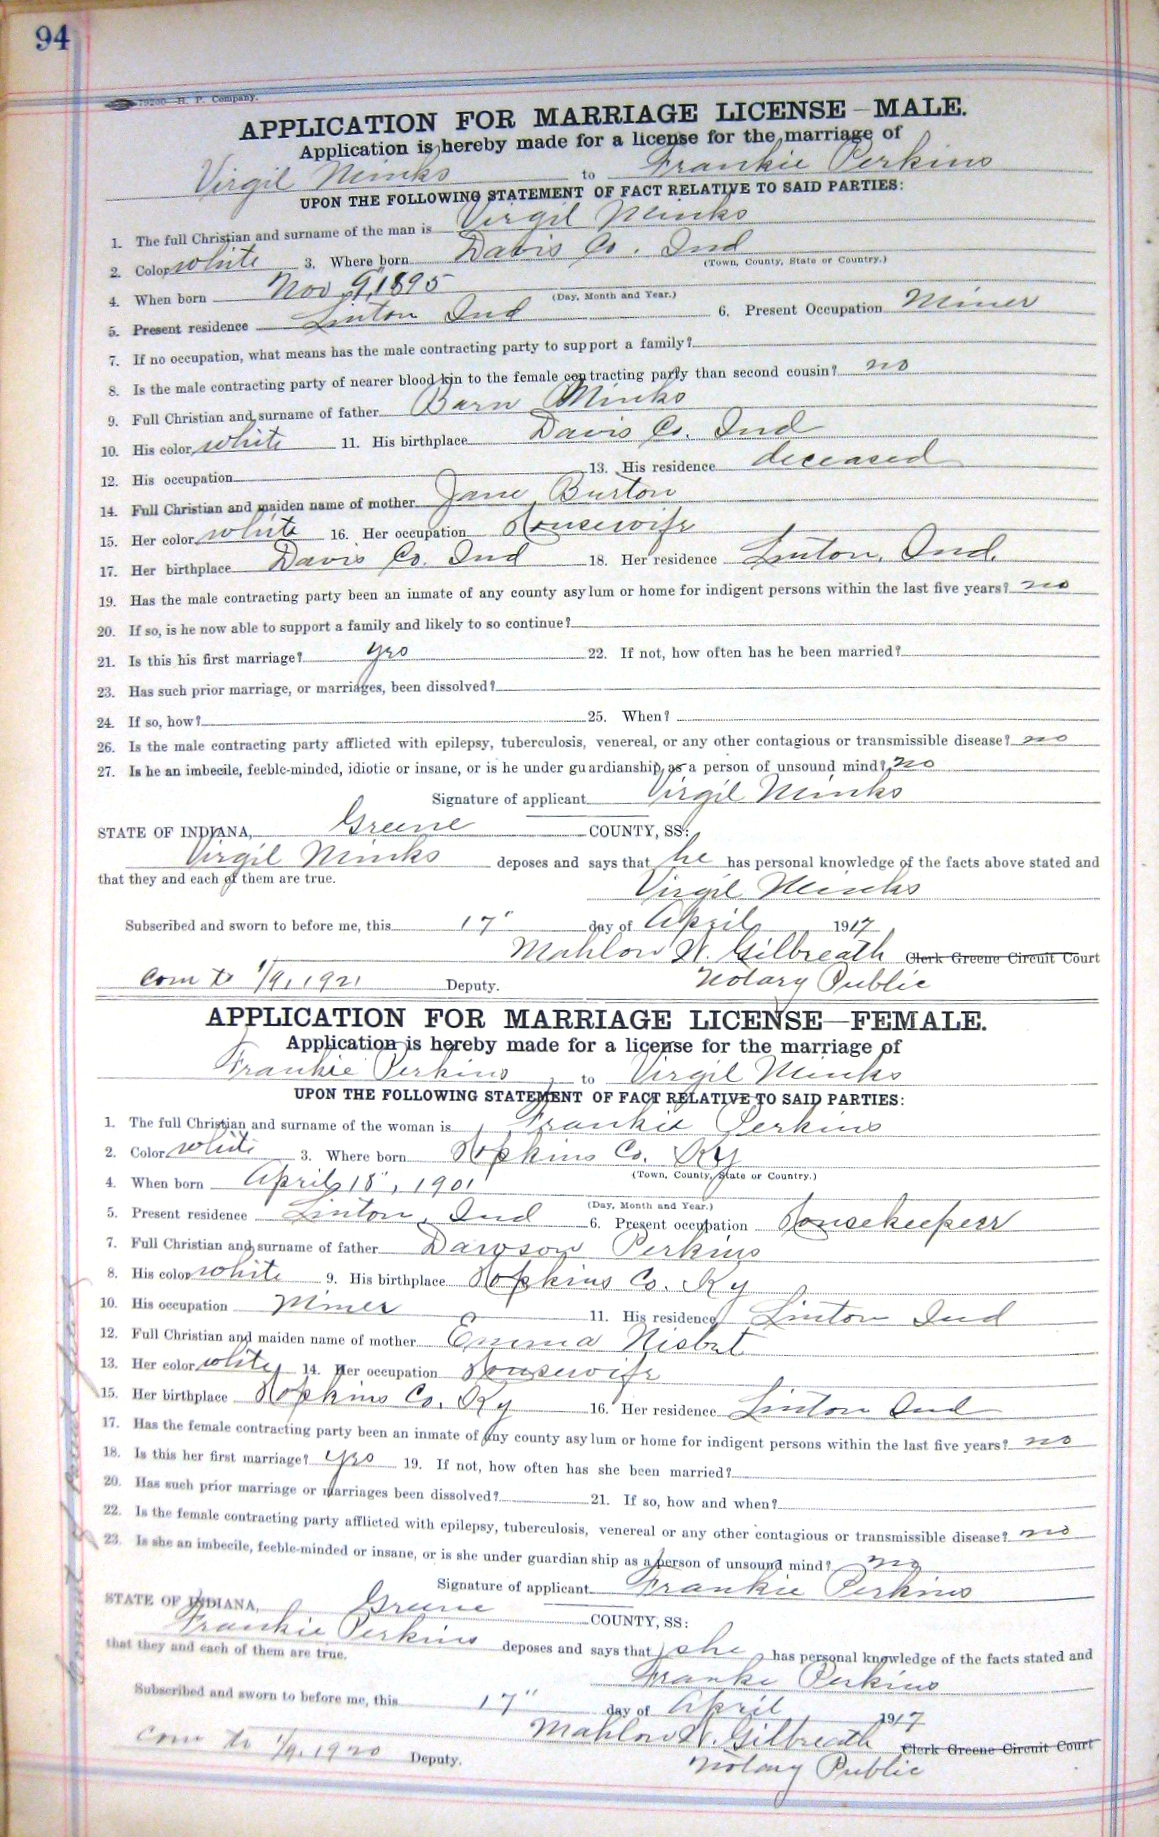 94
79200—H. P. Company.
APPLICATION FOR MARRIAGE LICENSE—MALE.
Application is hereby made for a license for the marriage of
Virgil Minks to Frankie Perkins
UPON THE FOLLOWING STATEMENT OF FACT RELATIVE TO SAID PARTIES:
1. The full Christian and surname of the man is Virgil Minks
2. Color white 3. Where born Davis Co. Ind
(Town, County, State or Country.)
4. When born Nov 9, 1895
(Day, Month and Year.)
5. Present residence Linton Ind 6. Present Occupation Miner
7. If no occupation, what means has the male contracting party to support a family?
8. Is the male contracting party of nearer blood kin to the female contracting party than second cousin? no
9. Full Christian and surname of father Barn Minks
10. His color white 11. His birthplace Davis Co. Ind
12. His occupation 13. His residence deceased
14. Full Christian and maiden name of mother Jane Burton
15. Her color white 16. Her occupation Housewife
17. Her birthplace Davis Co. Ind 18. Her residence Linton, Ind.
19. Has the male contracting party been an inmate of any county asylum or home for indigent persons within the last five years? no
20. If so, is he now able to support a family and likely to so continue?
21. Is this his first marriage? yes 22. If not, how often has he been married?
23. Has such prior marriage, or marriages, been dissolved?
24. If so, how? 25. When?
26. Is the male contracting party afflicted with epilepsy, tuberculosis, venereal, or any other contagious or transmissible disease? no
27. Is he an imbecile, feeble-minded, idiotic or insane, or is he under guardianship as a person of unsound mind? no
Signature of applicant Virgil Minks
STATE OF INDIANA, Greene COUNTY, SS:
Virgil Minks deposes and says that he has personal knowledge of the facts above stated and
that they and each of them are true. Virgil Minks
Subscribed and sworn to before me, this 17" day of April 1917
Mahlon N. Gilbreath Clerk Greene Circuit Court
Com to 1/9, 1921 Deputy. Notary Public
APPLICATION FOR MARRIAGE LICENSE—FEMALE.
Application is hereby made for a license for the marriage of
Frankie Perkins to Virgil Minks
UPON THE FOLLOWING STATEMENT OF FACT RELATIVE TO SAID PARTIES:
1. The full Christian and surname of the woman is Frankie Perkins
2. Color white 3. Where born Hopkins Co. Ky
(Town, County, State or Country.)
4. When born April 18", 1901
(Day, Month and Year.)
5. Present residence Linton, Ind 6. Present occupation Housekeeper
7. Full Christian and surname of father Dawson Perkins
8. His color white 9. His birthplace Hopkins Co. Ky
10. His occupation Miner 11. His residence Linton Ind
12. Full Christian and maiden name of mother Emma Nisbet
13. Her color white 14. Her occupation Housewife
15. Her birthplace Hopkins Co. Ky 16. Her residence Linton Ind
17. Has the female contracting party been an inmate of any county asylum or home for indigent persons within the last five years? no
18. Is this her first marriage? yes 19. If not, how often has she been married?
20. Has such prior marriage or marriages been dissolved? 21. If so, how and when?
22. Is the female contracting party afflicted with epilepsy, tuberculosis, venereal or any other contagious or transmissible disease? no
23. Is she an imbecile, feeble-minded or insane, or is she under guardianship as a person of unsound mind? no
Signature of applicant Frankie Perkins
STATE OF INDIANA, Greene COUNTY, SS:
Frankie Perkins deposes and says that she has personal knowledge of the facts stated and
that they and each of them are true. Franke Perkins
Subscribed and sworn to before me, this 17" day of April 1917
Mahlon N. Gilbreath Clerk Greene Circuit Court
Com to 1/9, 1920 Deputy. Notary Public